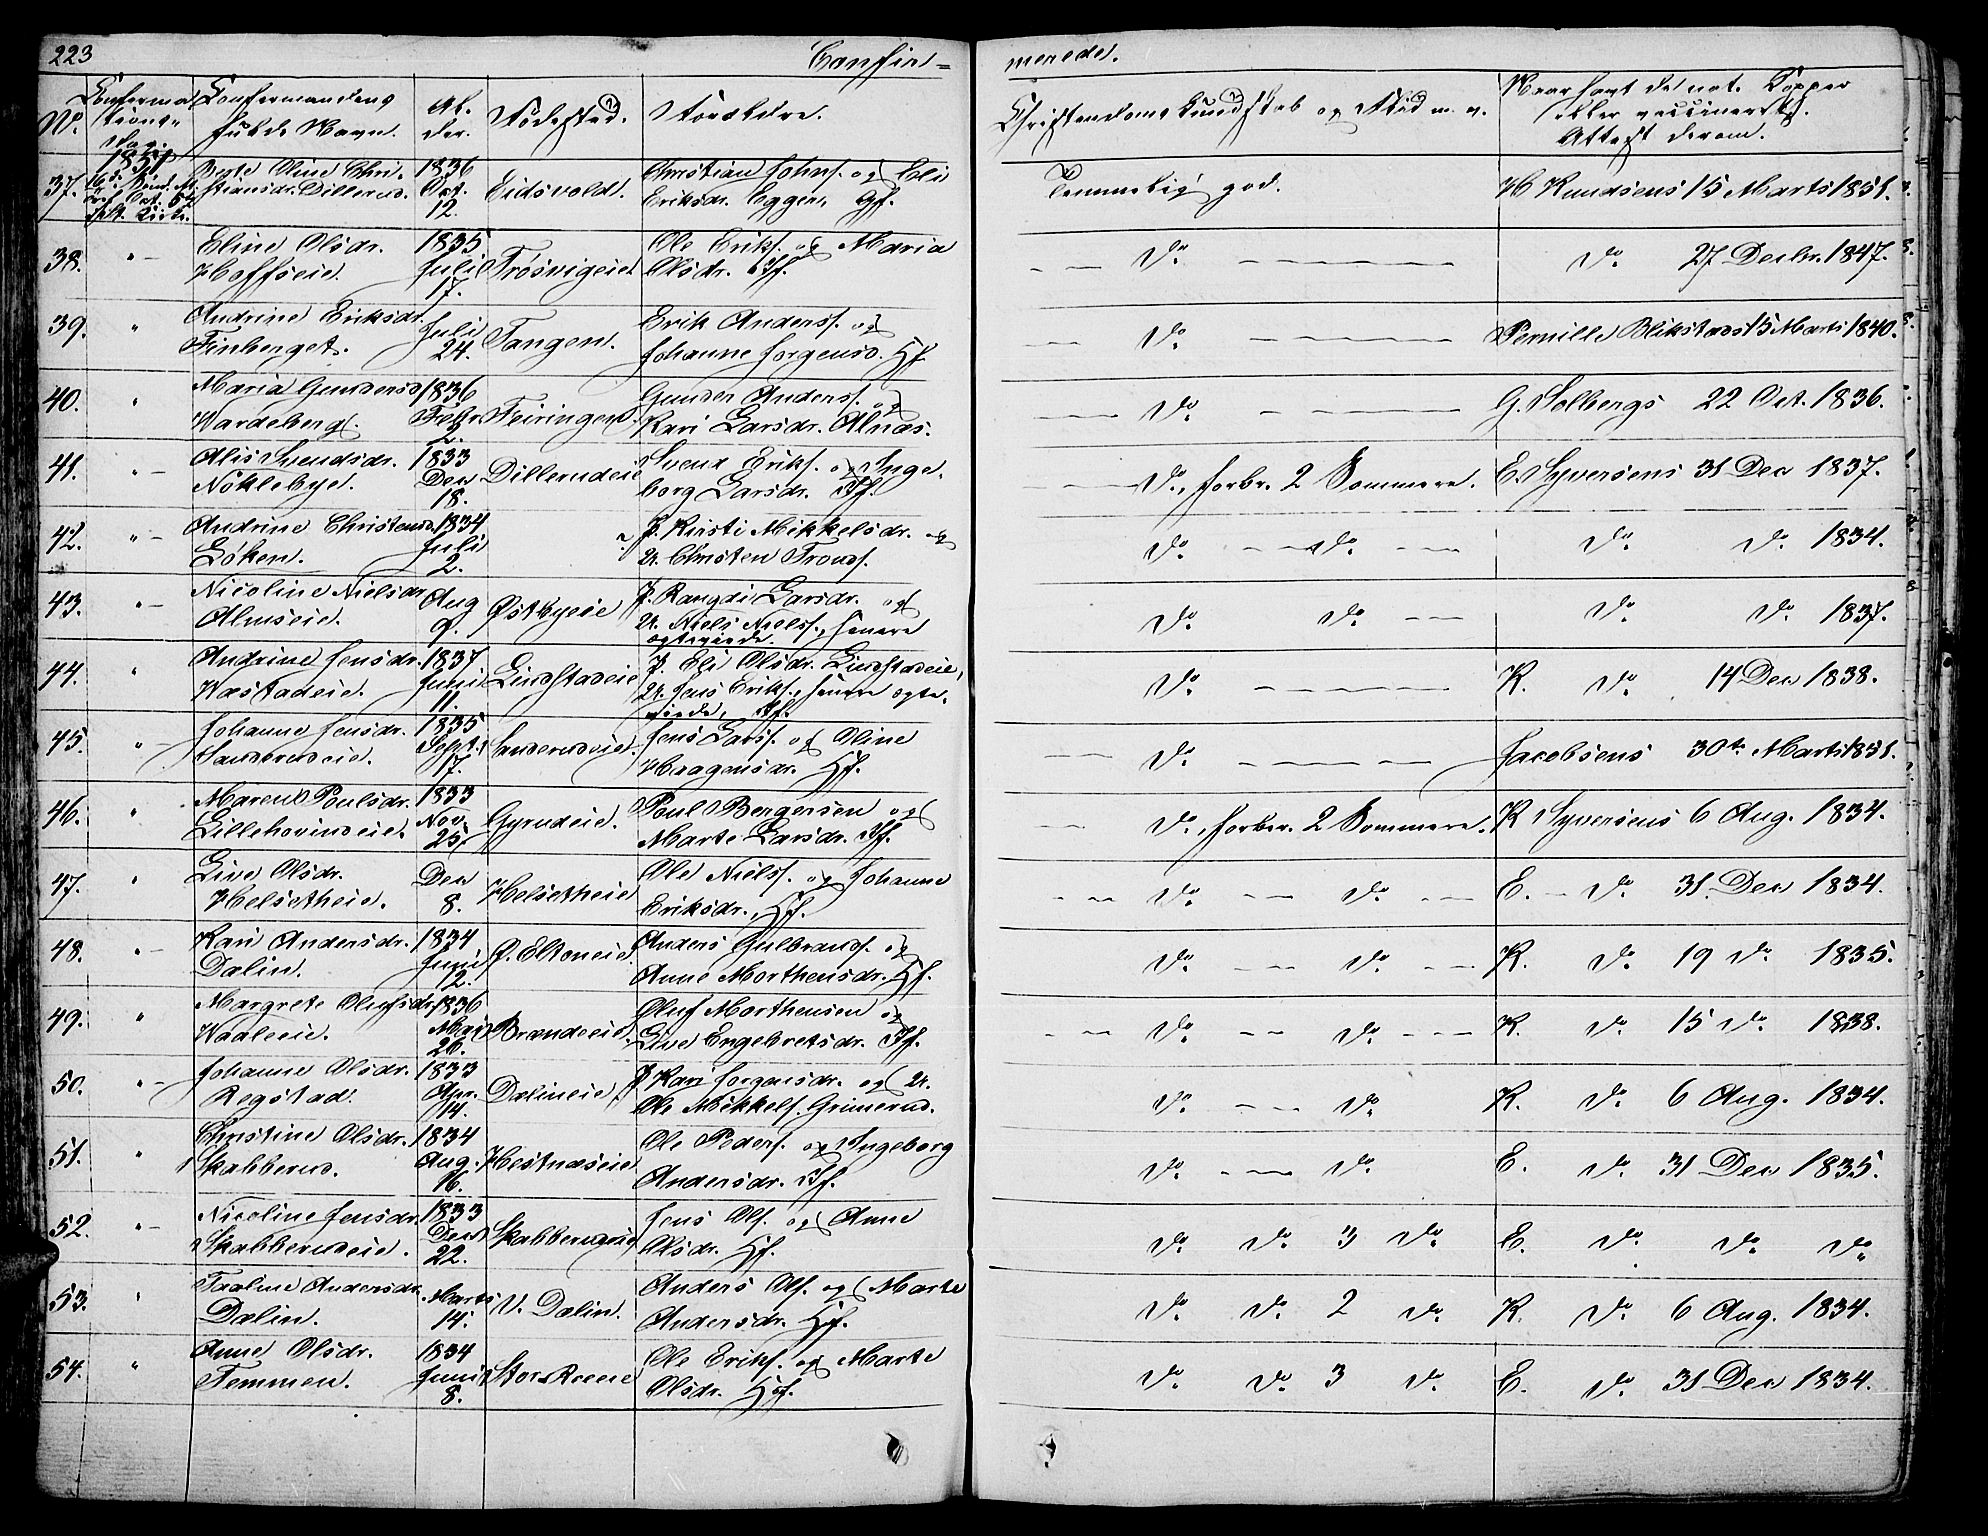 223
Confir=
merede.
No.
Confirma
tions=
dag.
Confirmandens
fulde Navn.
Al-
der.
Fødested.
Forældre.
Christendoms Kundskab og Flid m. v.
Naar havt de nat. Kopper
eller vaccineret.
Attest derom.
37.
1851
Berte Oline Chri-
stiansdr. Dillerud.
1836
Oct.
12.
Eidsvold.
Christian Johns. og Eli
Eriksdr. Eggen, Gf.
Temmelig god.
H Knudsens 15 Marts 1851.
38.
" -
Eline Olsdr.
Hoffseie.
1835
Juli
17.
Frøsvigeie.
Ole Eriks. og Maria
Olsdr. If.
Do
Do 27 Decbr. 1847.
39.
"
Andrine Eriksdr.
Finberget.
Juli
24.
Tangen.
Erik Anders. og
Johanne Jorgensd. Hf.
Do
Pernille Blikstads 15 Marts 1840.
40.
"
Maria Gundersd
Wardeberg.
1836
Febr
2.
Feiringen.
Gunder Anders. og
Kari Larsdr. Alnæs.
Do
G. Solbergs 22 Oct. 1836.
41.
" -
Alis Svendsdr.
Nöklebye.
1833
Dec
18.
Dillerudeie
Svend Eriks. og Inge-
borg Larsdr. If.
Do, forbr. 2 Sommere.
E. Syversens 31 Dec 1837.
42.
" -
Andrine Christensd.
Löken.
1834
Juli
2.
P. Kirsti Mikkelsdr. og
U. Christen Tronds.
Do - - Do - -
Do Do 1834.
43.
" -
Nicoline Nielsdr
Almseie.
Aug
9.
Østbyeie
P. Rangdi Larsdr. og
U. Niels Niels., senere
egteviede.
Do Do - -
Do Do 1837.
44.
"
Andrine Jensdr.
Wæstadeie.
1837
Juni
11.
Lindstadeie
P. Eli Olsdr. Lindstadeie,
U. Jens Eriks., senere egte-
viede, If.
Do
K. Do 14 Dec 1838.
45.
" -
Johanne Jensdr.
Sanderudeie.
1835
Sept.
17.
Sanderudeie.
Jens Lars. og Oline
Haagensdr. Hf.
Do
Jacobsens 30te Marts 1851.
46.
"
Maren Poulsdr.
Lillehovindeie.
1833
Nov.
25.
Gyrudeie.
Poul Bergersen og
Marte Larsdr. If.
Do, forbr. 2 Sommere.
K Syversens 6 Aug. 1834.
47.
"
Live Olsdr.
Helsetheie.
Dec
8.
Helsetheie
Ole Niels. og Johanne
Eriksdr., Hf.
Do - - Do
E. - Do 31. Dec 1834.
48.
" -
Kari Andersdr.
Dalin.
1834
Juni
12.
Ø. Eltoneie.
Anders Gulbrands. og
Anne Morthensdr. Hf.
Do - - Do - -
K. Do 19 Do 1835.
49.
"
Margrete Olufsdr.
Waaleeie.
1836
Mai
26.
Brændeie.
Oluf Morthensen og
Live Engebretsdr. If.
Do - - Do - -
K. Do 15 Do 1838.
50.
" -
Johanne Olsdr.
Regstad.
1833
Apr.
14.
Dælineie
P Kari Jorgensdr. og U.
Ole Mikkels. Grimerud.
Do - - Do
K. Do 6 Aug. 1834.
51.
"
Christine Olsdr.
Skabberud.
1834
Aug.
16.
Hestnæseie
Ole Peders. og Ingeborg
Andersdr. If.
Do - - Do
E. Do 31 Dec 1835.
52.
" -
Nicoline Jensdr.
Skabberudeie.
1833
Dec
22.
Skabberudeie
Jens Ols. og Anne
Olsdr. Hf.
Do Do 3 Do
E. Do Do Do
53.
"
Andersdr.
Dælin.
Marts
14.
V. Dælin.
Anders Ols. og Marte
Andersdr. Hf.
Do Do 2 Do
K. Do 6 Aug. 1834.
54.
"
Anne Olsdr.
Temmen.
1834
Juni
8.
Store Reeie
Ole Eriks. og Marte
Olsdr. Hf.
Do Do 3 Do
E. Do 31 Dec 1834.